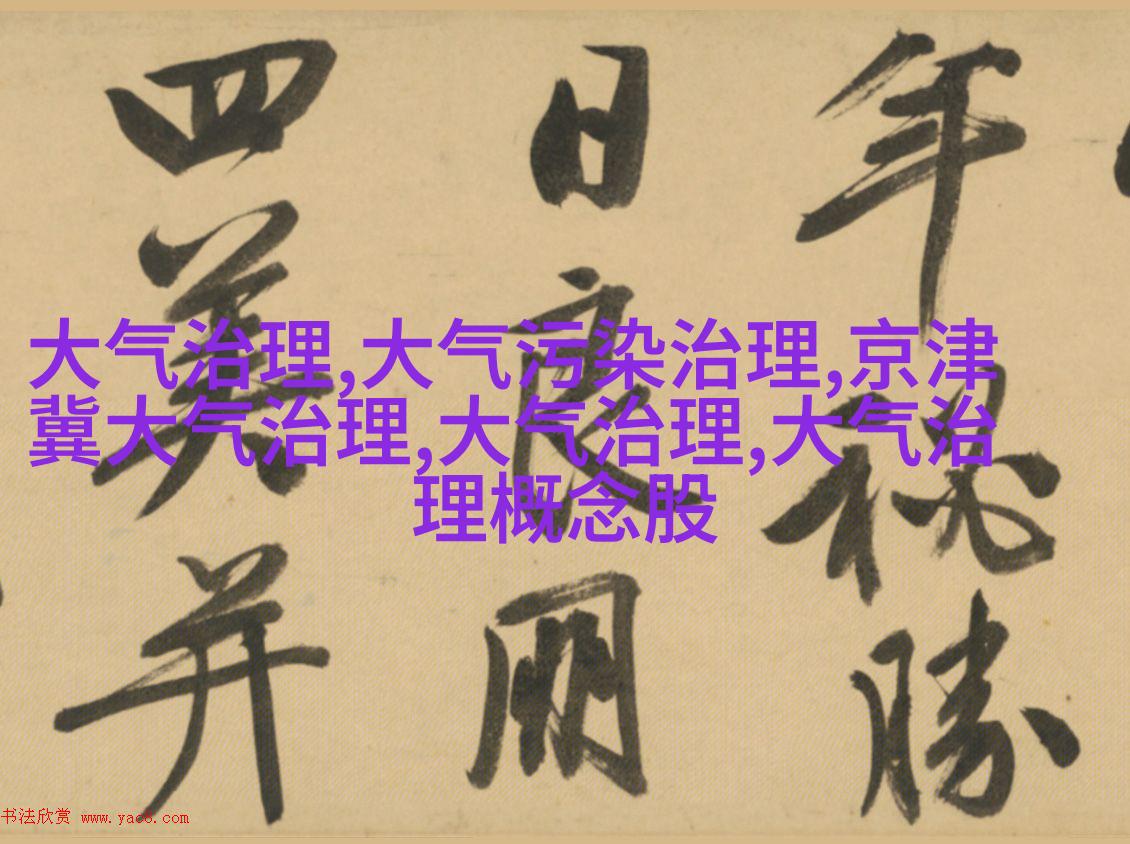 大气治理,大气污染治理,京津
冀大气治理,大气治理,大气治
理概念股
年
勝
日良朋
四美并
书法欣赏 www.yac8.com